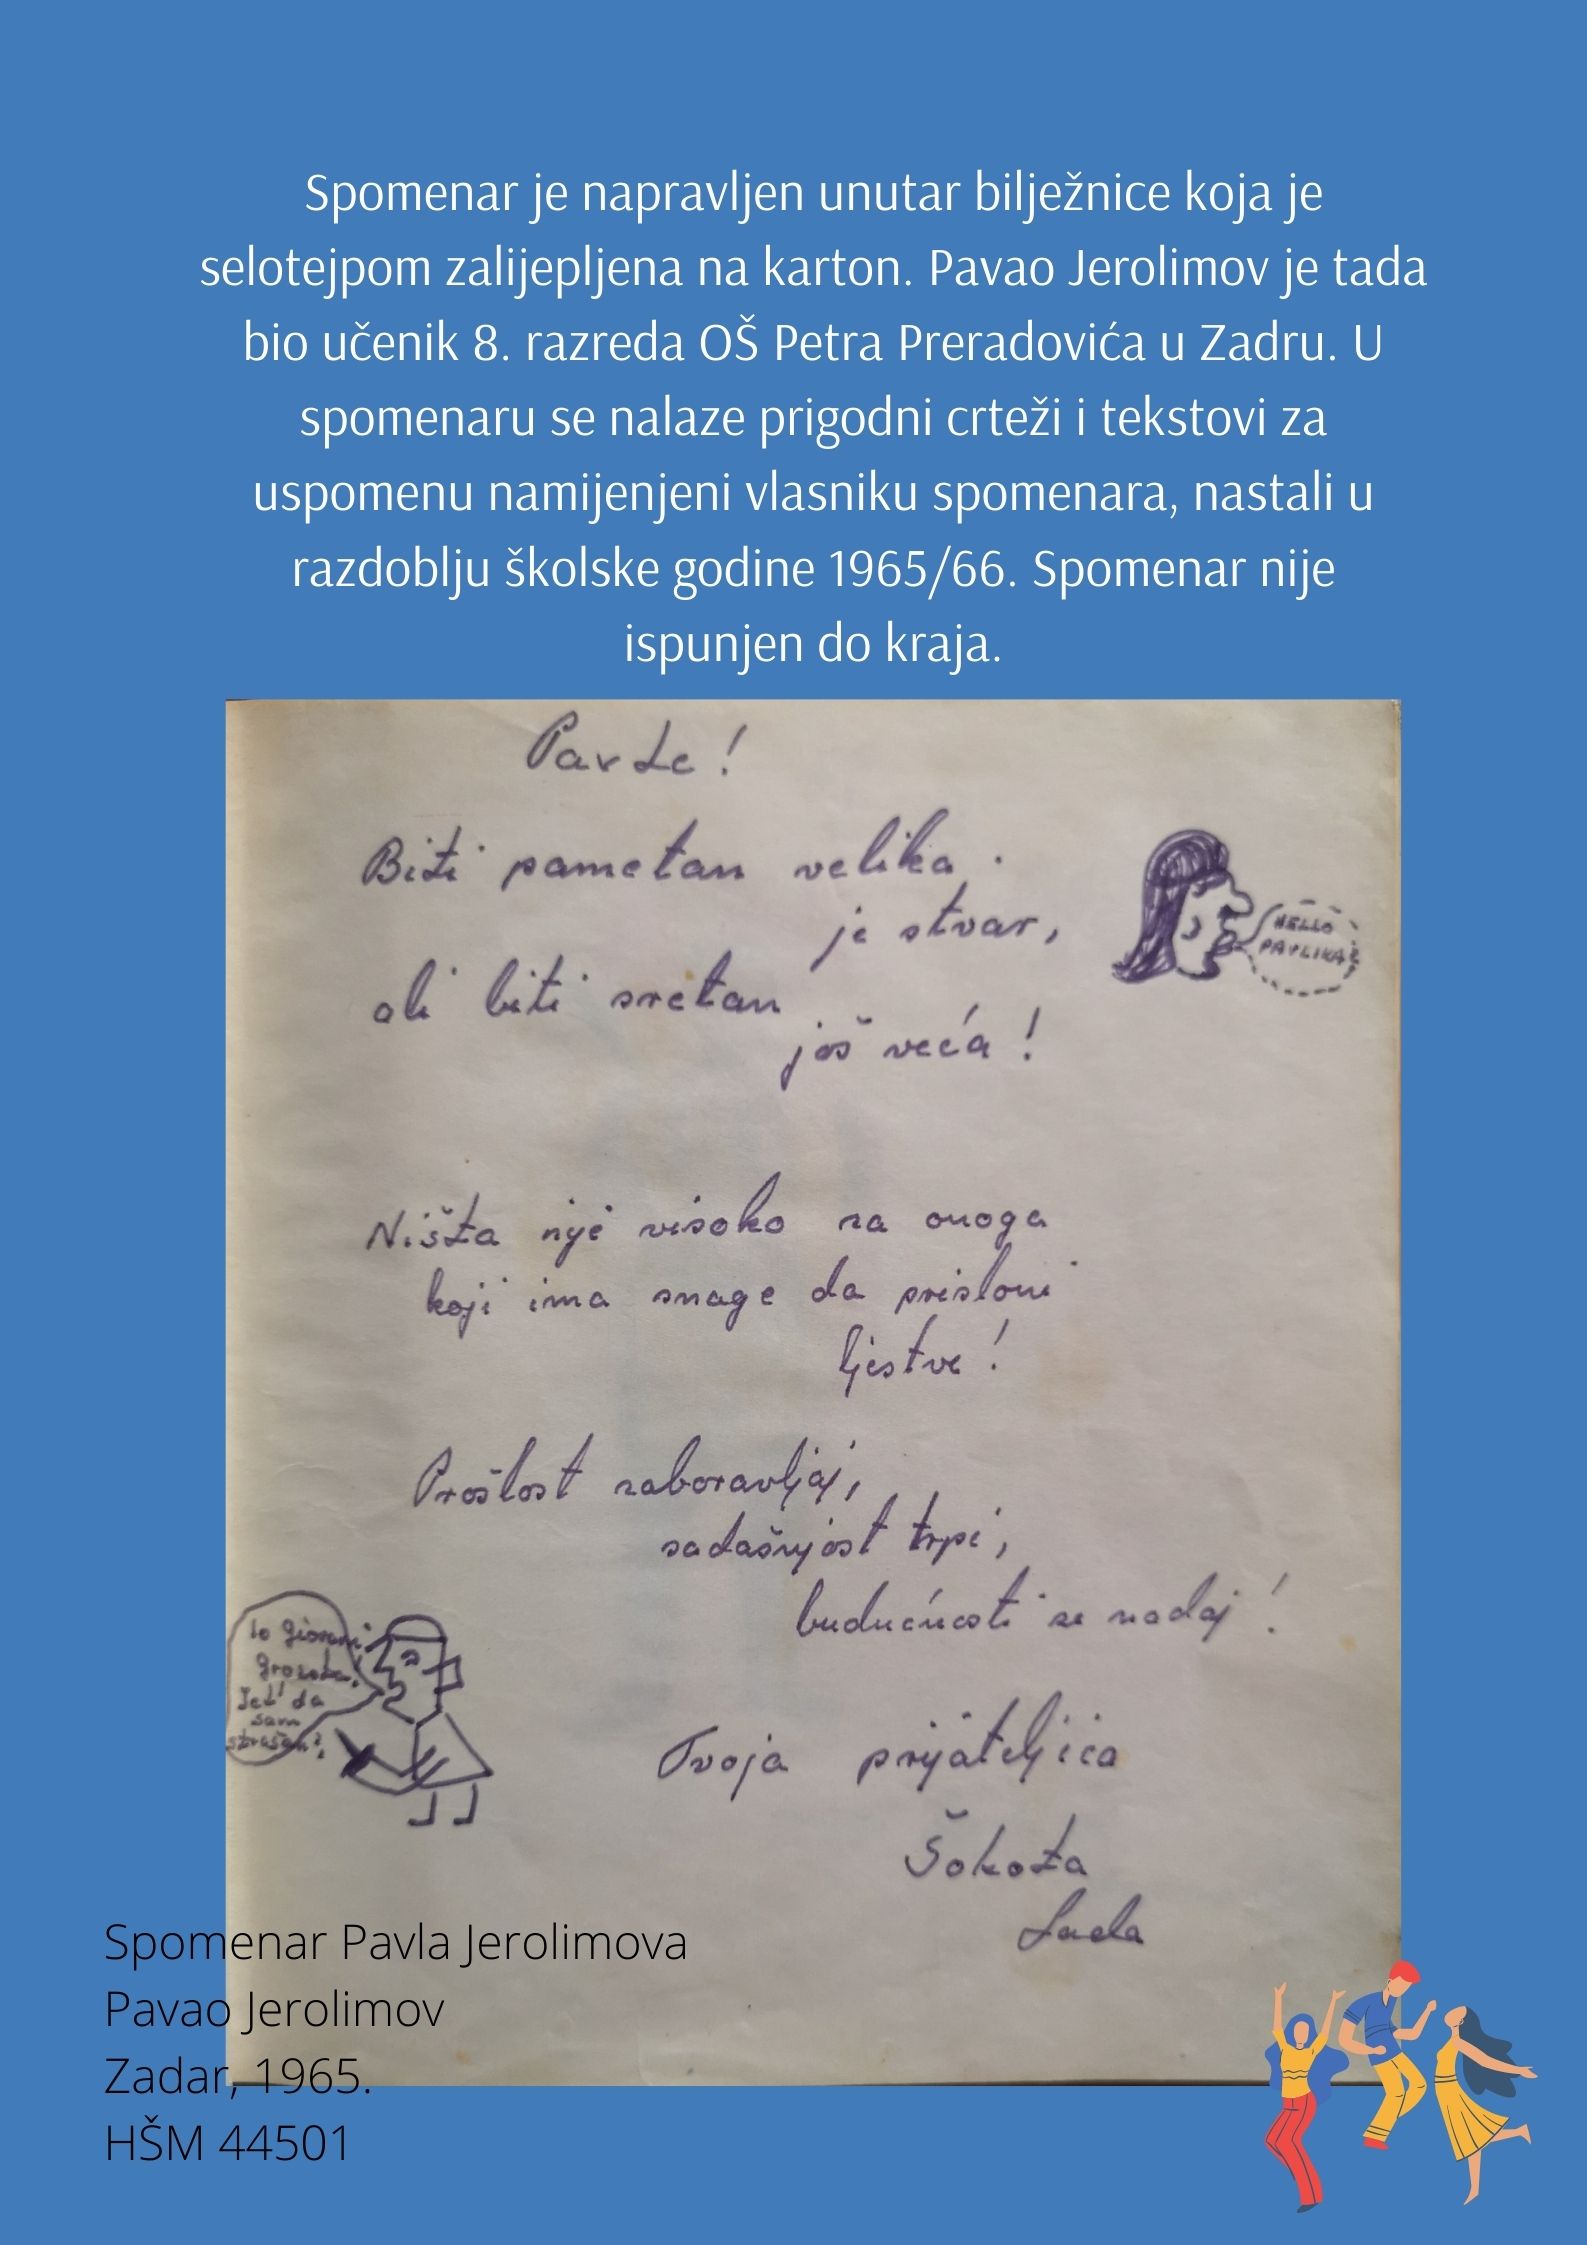 Spomenar je napravljen unutar bilježnice koja je
selotejpom zalijepljena na karton. Pavao Jerolimov je tada
bio učenik 8. razreda OŠ Petra Preradovića u Zadru. U
spomenaru se nalaze prigodni crteži i tekstovi za
uspomenu namijenjeni vlasniku spomenara, nastali u
razdoblju školske godine 1965/66. Spomenar nije
ispunjen do kraja.
Pavle!
Biti pametan velika
je stvar,
HELLO
PAVLIKA
ali biti sretan
još veća!
Ništa nije visoko za onoga
koji ima snage da prisloni
ljestve!
Prošlost zaboravljaj,
sadašnjost trpi,
budućnosti se nadaj!
Io
Jel' da
sam
strašan?
Tvoja prijateljica
Šokota
Lada
Spomenar Pavla Jerolimova
Pavao Jerolimov
Zadar, 1965.
HŠM 44501